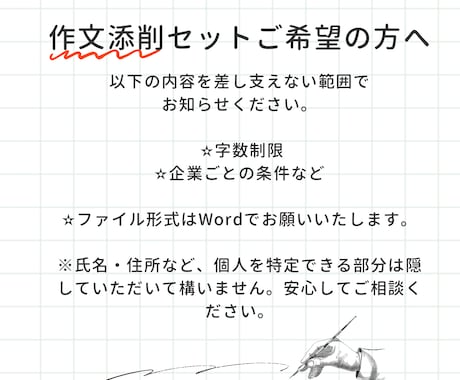 作文添削セットご希望の方へ
以下の内容を差し支えない範囲で
お知らせください。
☆字数制限
☆企業ごとの条件など
☆ファイル形式はWordでお願いいたします。
※氏名・住所など、個人を特定できる部分は隠
していただいて構いません。安心してご相談く
ださい。